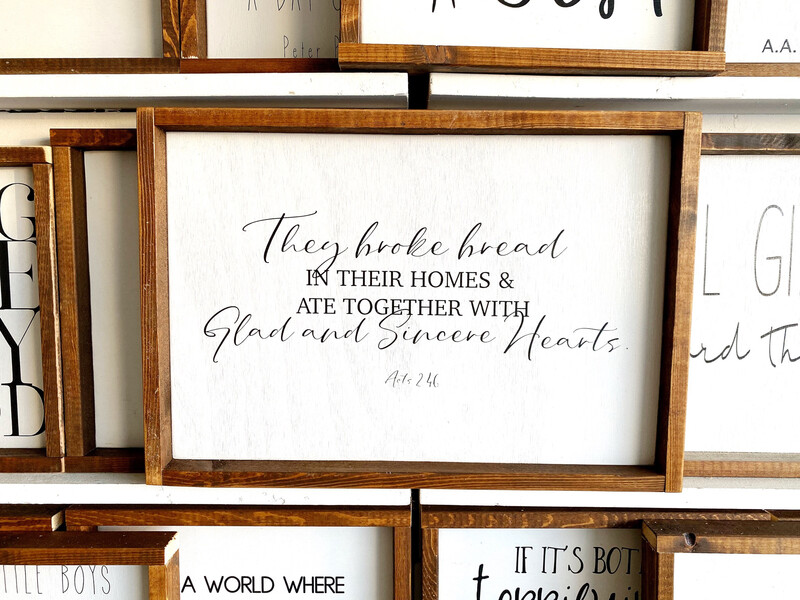 A DAY
Peter
A.A.
They broke bread
IN THEIR HOMES &
ATE TOGETHER WITH
Glad and Sincere Hearts.
Acts 2:46
G
E
Y
D
L GI
Th
BOYS
A WORLD WHERE
IF IT'S